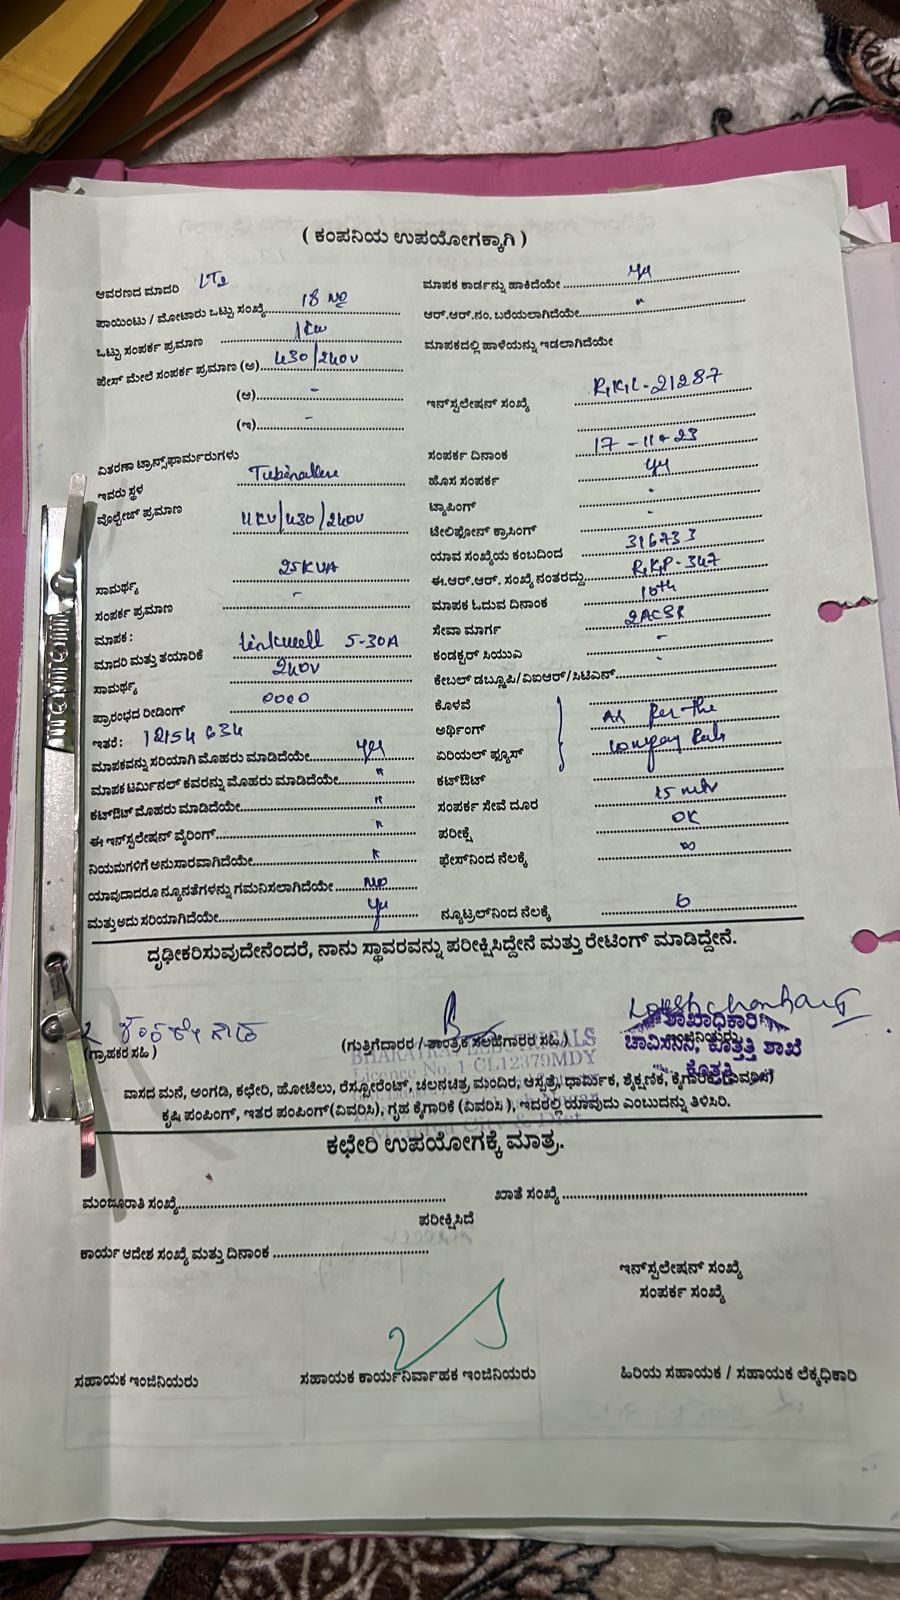 ( ಕಂಪನಿಯ ಉಪಯೋಗಕ್ಕಾಗಿ )
ಆವರಣದ ಮಾದರಿ LT2
ಪಾಯಿಂಟು / ಮೋಟಾರು ಒಟ್ಟು ಸಂಖ್ಯೆ 18 No
ಒಟ್ಟು ಸಂಪರ್ಕ ಪ್ರಮಾಣ 1KW
ಫೇಸ್ ಮೇಲೆ ಸಂಪರ್ಕ ಪ್ರಮಾಣ (ಅ) 430/240V
(ಆ) -
(ಇ) -
ವಿತರಣಾ ಟ್ರಾನ್ಸ್‌ಫಾರ್ಮರುಗಳು
ಇವರು ಸ್ಥಳ
ವೊಲ್ಟೇಜ್ ಪ್ರಮಾಣ 11KV/430/240V
ಸಾಮರ್ಥ್ಯ 25KVA
ಸಂಪರ್ಕ ಪ್ರಮಾಣ -
ಮಾಪಕ :
ಮಾದರಿ ಮತ್ತು ತಯಾರಿಕೆ Linkwell 5-30A
ಸಾಮರ್ಥ್ಯ 240V
ಪ್ರಾರಂಭದ ರೀಡಿಂಗ್ 0000
ಇತರೆ : 12154634
ಮಾಪಕವನ್ನು ಸರಿಯಾಗಿ ಮೊಹರು ಮಾಡಿದೆಯೇ yes
ಮಾಪಕ ಟರ್ಮಿನಲ್ ಕವರನ್ನು ಮೊಹರು ಮಾಡಿದೆಯೇ "
ಕಟ್‌ಔಟ್ ಮೊಹರು ಮಾಡಿದೆಯೇ "
ಈ ಇನ್‌ಸ್ಟಲೇಷನ್ ವೈರಿಂಗ್ "
ನಿಯಮಗಳಿಗೆ ಅನುಸಾರವಾಗಿದೆಯೇ "
ಯಾವುದಾದರೂ ನ್ಯೂನತೆಗಳನ್ನು ಗಮನಿಸಲಾಗಿದೆಯೇ No
ಮತ್ತು ಅದು ಸರಿಯಾಗಿದೆಯೇ yes
ಮಾಪಕ ಕಾರ್ಡನ್ನು ಹಾಕಿದೆಯೇ yes
ಆರ್.ಆರ್.ನಂ. ಬರೆಯಲಾಗಿದೆಯೇ "
ಮಾಪಕದಲ್ಲಿ ಹಾಳೆಯನ್ನು ಇಡಲಾಗಿದೆಯೇ
ಇನ್‌ಸ್ಟಲೇಷನ್ ಸಂಖ್ಯೆ R.K.L-21287
ಸಂಪರ್ಕ ದಿನಾಂಕ 17-11-23
ಹೊಸ ಸಂಪರ್ಕ yes
ಟ್ಯಾಪಿಂಗ್ -
ಟೆಲಿಫೋನ್ ಕ್ರಾಸಿಂಗ್ -
ಯಾವ ಸಂಖ್ಯೆಯ ಕಂಬದಿಂದ 316733
ಈ.ಆರ್.ಆರ್. ಸಂಖ್ಯೆ ನಂತರದ್ದು R.K.P-347
ಮಾಪಕ ಓದುವ ದಿನಾಂಕ 10th
ಸೇವಾ ಮಾರ್ಗ 2ACSR
ಕಂಡಕ್ಟರ್ ಸಿಯುವಿ -
ಕೇಬಲ್ ಡಬ್ಲೂಪಿ/ವಿಐಆರ್/ಸಿಟಿಎನ್ -
ಕೊಳವೆ
ಅರ್ಥಿಂಗ್ As per the
ಏರಿಯಲ್ ಫ್ಯೂಸ್ Company Rules
ಕಟ್‌ಔಟ್
ಸಂಪರ್ಕ ಸೇವೆ ದೂರ 15 mtr
ಪರೀಕ್ಷೆ OK
ಫೇಸ್‌ನಿಂದ ನೆಲಕ್ಕೆ ∞
ನ್ಯೂಟ್ರಲ್‌ನಿಂದ ನೆಲಕ್ಕೆ 0
ದೃಢೀಕರಿಸುವುದೇನೆಂದರೆ, ನಾನು ಸ್ಥಾವರವನ್ನು ಪರೀಕ್ಷಿಸಿದ್ದೇನೆ ಮತ್ತು ರೇಟಿಂಗ್ ಮಾಡಿದ್ದೇನೆ.
(ಗ್ರಾಹಕರ ಸಹಿ )
(ಗುತ್ತಿಗೆದಾರರ / ತಾಂತ್ರಿಕ ಸಲಹೆಗಾರರ ಸಹಿ )
ಶಾಖಾಧಿಕಾರಿ
ಚಾವಿಸನಿನಿ, ಕೊತ್ತತ್ತಿ ಶಾಖೆ
ಕೊತ್ತತ್ತಿ
ELECTRICALS
Licence No. 1-CL12379MDY
ವಾಸದ ಮನೆ, ಅಂಗಡಿ, ಕಛೇರಿ, ಹೋಟೆಲು, ರೆಸ್ಟೋರೆಂಟ್, ಚಲನಚಿತ್ರ, ಮಂದಿರ, ಆಸ್ಪತ್ರೆ, ಧಾರ್ಮಿಕ, ಶೈಕ್ಷಣಿಕ, ಕೈಗಾರಿಕೆ
ಕೃಷಿ ಪಂಪಿಂಗ್, ಇತರ ಪಂಪಿಂಗ್ (ವಿವರಿಸಿ), ಗೃಹ ಕೈಗಾರಿಕೆ (ವಿವರಿಸಿ ), ಇದರಲ್ಲಿ ಯಾವುದು ಎಂಬುದನ್ನು ತಿಳಿಸಿರಿ.
ಕಛೇರಿ ಉಪಯೋಗಕ್ಕೆ ಮಾತ್ರ.
ಮಂಜೂರಾತಿ ಸಂಖ್ಯೆ
ಖಾತೆ ಸಂಖ್ಯೆ
ಪರೀಕ್ಷಿಸಿದೆ
ಕಾರ್ಯ ಆದೇಶ ಸಂಖ್ಯೆ ಮತ್ತು ದಿನಾಂಕ
ಇನ್‌ಸ್ಟಲೇಷನ್ ಸಂಖ್ಯೆ
ಸಂಪರ್ಕ ಸಂಖ್ಯೆ
ಸಹಾಯಕ ಇಂಜಿನಿಯರು
ಸಹಾಯಕ ಕಾರ್ಯನಿರ್ವಾಹಕ ಇಂಜಿನಿಯರು
ಹಿರಿಯ ಸಹಾಯಕ / ಸಹಾಯಕ ಲೆಕ್ಕಧಿಕಾರಿ